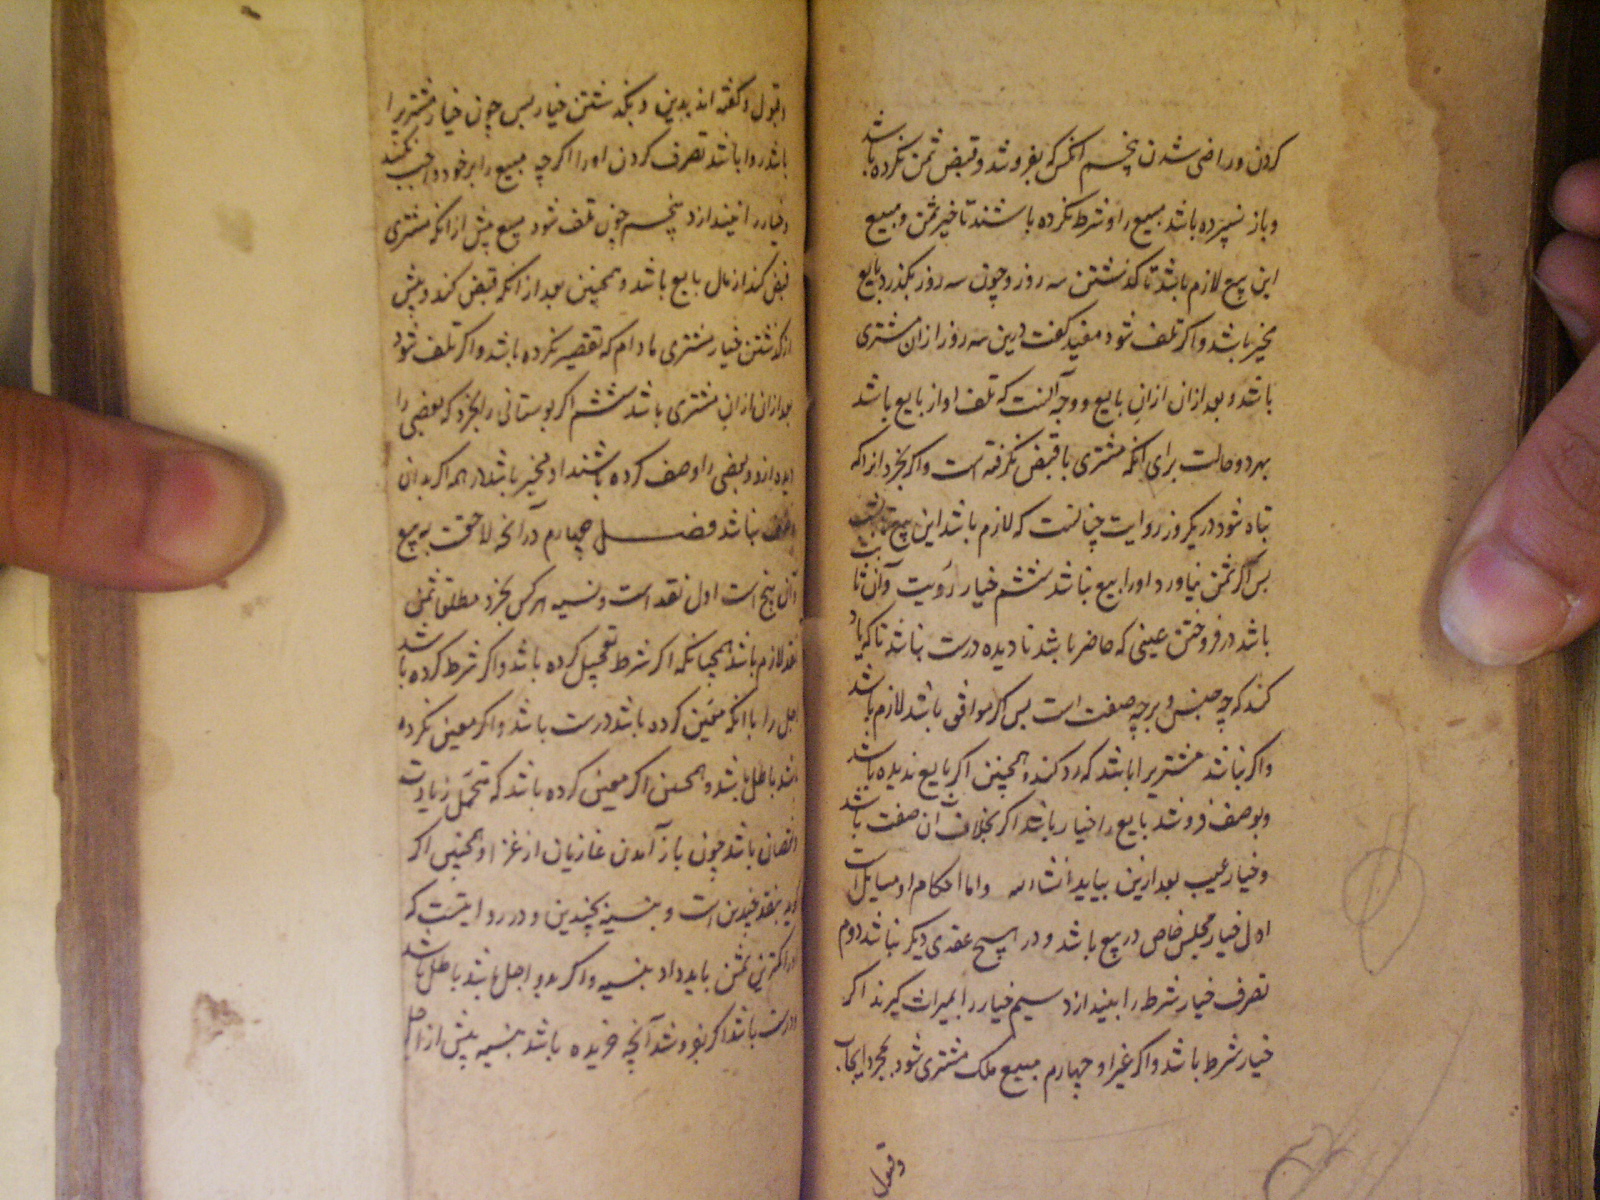 کردن و راضی شدن پنجم آنکس که بفروشد و قبض ثمن نکرده باشد
و باز نسپرده باشد مبیع را و شرط نکرده باشند تاخیر ثمن و مبیع
این بیع لازم باشد تا گذشتن سه روز و چون سه روز بگذرد بایع
مخیر باشد و اگر تلف شود مفید گفت درین سه روز از ان مشتری
باشد و بعد از ان از ان بایع و وجه آنست که تلف او از بایع باشد
بهر دو حالت برای آنکه مشتری با قبض نگرفته است و اگر بخرد از انکه
تباه شود در یکروز روایت چنانست که لازم باشد این بیع تا شب
پس اگر ثمن نیاورد او را بیع نباشد ششم خیار رؤیت و آن ثابت
باشد در فروختن عینی که حاضر باشد نادیده درست نباشد تا که یاد
کند که چه جنس و بر چه صفت است پس اگر موافق باشد لازم باشد
و اگر نباشد مشتریرا باشد که رد کند و همچنین اگر بایع ندیده باشد
و بوصف فروشد بایع را خیار باشد اگر بخلاف آن صفت باشد
و خیار عیب بعد ازین بیاید انشاء الله و اما احکام او مسایل است
اول خیار مجلس خاص در بیع باشد و در هیچ عقدی دیگر نباشد دوم
تصرف خیار شرط را بیندازد سیم خیار را بمیراث گیرند اگر
خیار شرط باشد و اگر غیر او چهارم مبیع ملک مشتری شود بمجرد ایجاب
وقبول
و قبول و گفته اند بدین و بگذشتن خیار پس چون خیار مشتریرا
باشد روا باشد تصرف کردن او را اگر چه مبیع را بر خود واجب نکند
و خیار را نیندازد پنجم چون تلف شود مبیع پیش از انکه مشتری
قبض کند از مال بایع باشد و همچنین بعد از انکه قبض کند و پیش
از گذشتن خیار مشتری مادام که تقصیر نکرده باشد و اگر تلف شود
بعد از ان از ان مشتری باشد ششم اگر بوستانی را بخرد که بعضی را
دیده و بعضی را وصف کرده باشند او مخیر باشد در همه اگر بدان
وصف نباشد فصل چهارم در آنچه لاحقت به بیع
و آن پنج است اول نقد است و نسیه هر کس بخرد مطلقا ثمن
نقد لازم باشد همچنانکه اگر شرط تعجیل کرده باشد و اگر شرط کرده باشد
اجل را با آنکه معین کرده باشد درست باشد و اگر معین نکرده
باشد باطل باشد و همچنین اگر معین کرده باشد که محتمل زیادت
و نقصان باشد چون باز آمدن غازیان از غزا و همچنین اگر
گوید بنقد چندین است و بنسیه بچندین و در روایتست که
او را کمترین ثمن باید داد بنسیه و اگر بدو اجل باشد باطل باشد
و درست باشد اگر بفروشد آنچه خریده باشد بنسیه پیش از اجل